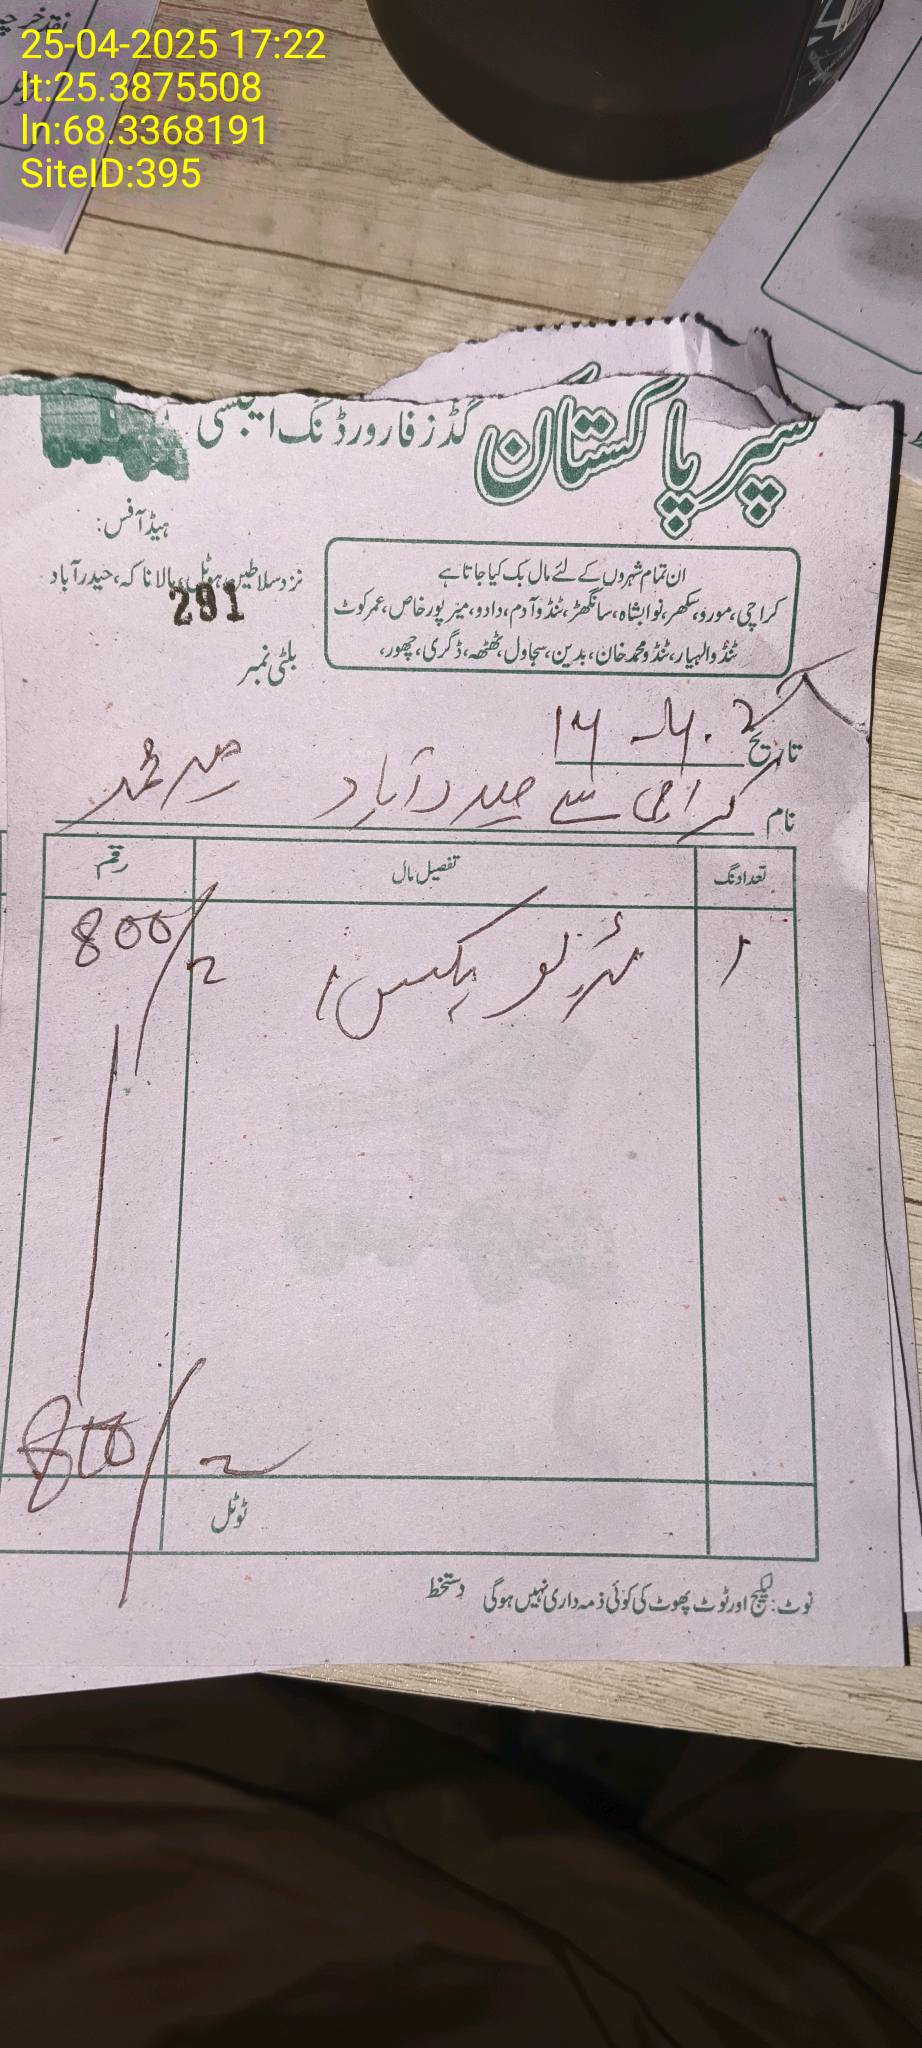 25-04-2025 17:22
lt:25.3875508
ln:68.3368191
SiteID:395
سپر پاکستان گڈز فارورڈنگ ایجنسی
ہیڈ آفس:
نزد سلاطین ہوٹل، ہالا ناکہ، حیدرآباد
291
بلٹی نمبر
ان تمام شہروں کے لئے مال بک کیا جاتا ہے
کراچی، مورو، سکھر، نوابشاہ، سانگھڑ، ٹنڈو آدم، دادو، میرپور خاص، عمر کوٹ
ٹنڈوالہیار، ٹنڈو محمد خان، بدین، سجاول، ٹھٹھہ، ڈگری، چھور،
تاریخ
نام کراچی سے حیدرآباد
تعداد نگ تفصیل مال رقم
1 800/
800/
ٹوٹل
نوٹ: لیکیج اور ٹوٹ پھوٹ کی کوئی ذمہ داری نہیں ہوگی دستخط